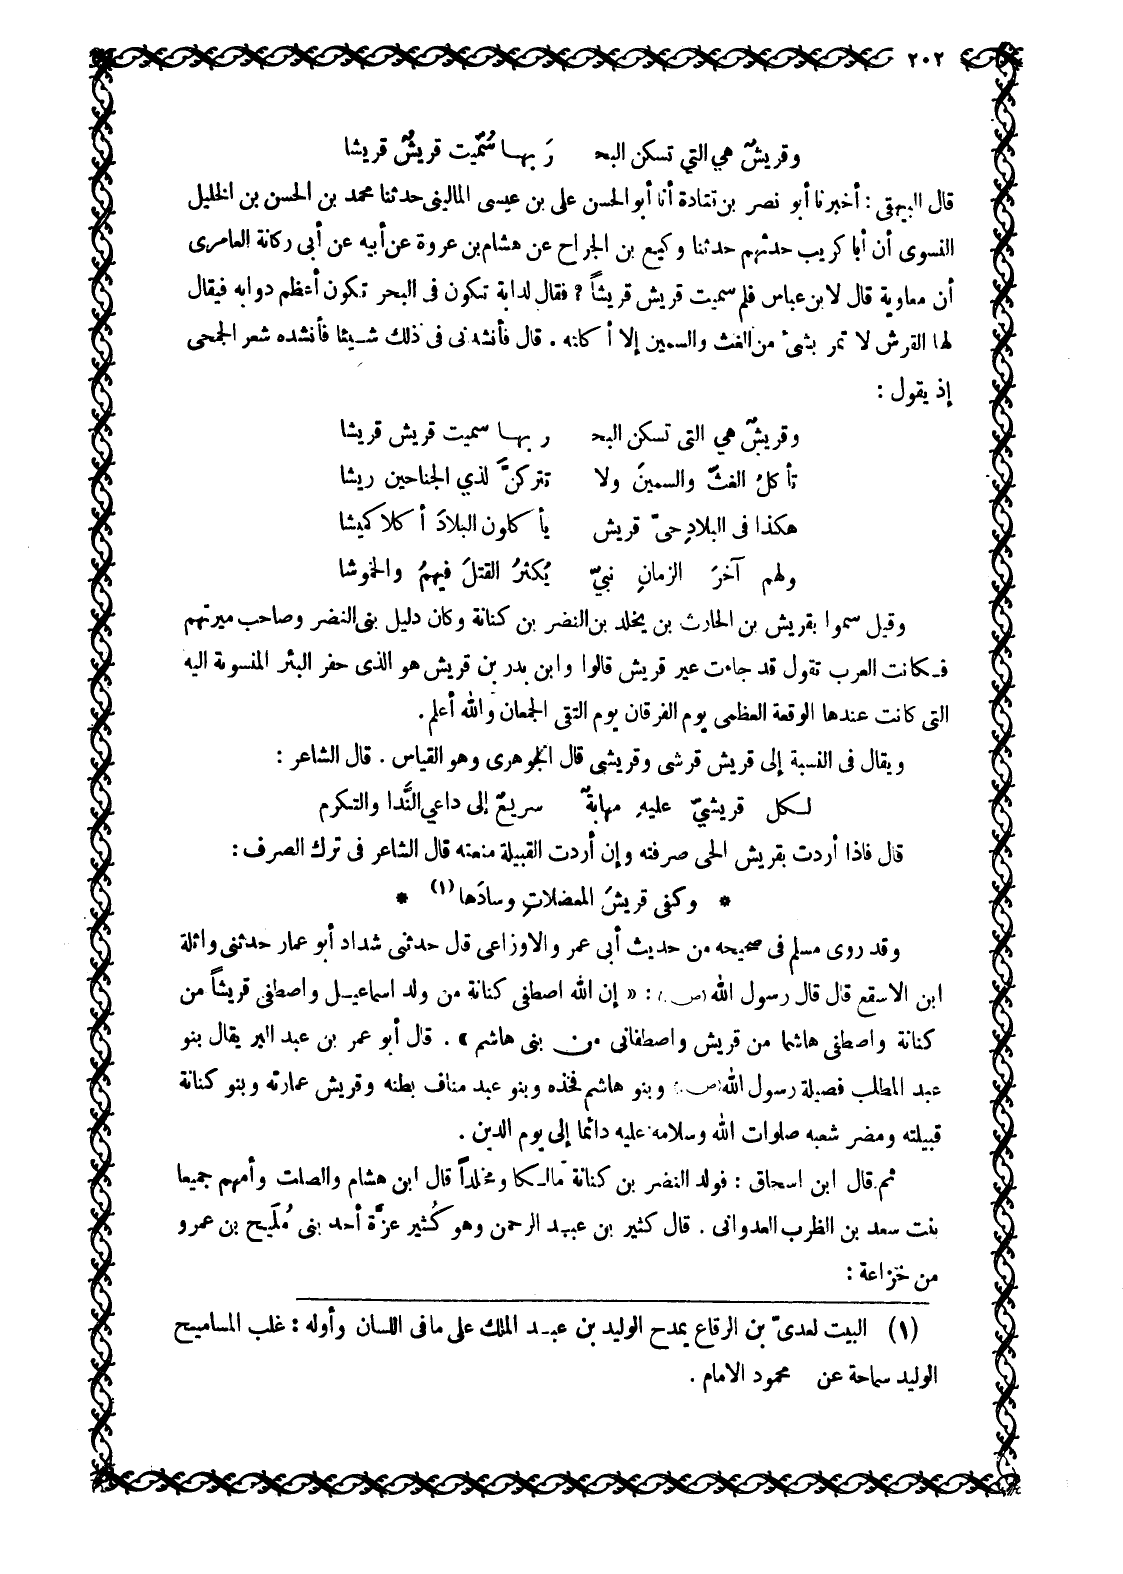 ٢٠٢
وقريشٌ هي التي تسكن البحـ رَ بهـا سُمّيت قريشٌ قريشا
قال البيهقي : أخبرنا أبو نصر بن قتادة أنا أبو الحسن علي بن عيسى الماليني حدثنا محمد بن الحسن بن الخليل
النسوى أن أبا كريب حدثهم حدثنا وكيع بن الجراح عن هشام بن عروة عن أبيه عن أبي ركانة العامرى
أن معاوية قال لابن عباس فلم سميت قريش قريشاً ؟ فقال لدابة تكون فى البحر تكون أعظم دوابه فيقال
لها القرش لا تمر بشئ من الغث والسمين إلا أكلته . قال فأنشدنى فى ذلك شيئا فأنشده شعر الجمحى
إذ يقول :
وقريشٌ هي التى تسكن البحـ ر بهـا سميت قريش قريشا
تأكلُ الغثَّ والسمينَ ولا تتركنَّ لذي الجناحين ريشا
هكذا فى البلادِ حىّ قريش يأكلون البلادَ أكلا كميشا
ولهم آخرَ الزمانِ نبيّ يُكثرُ القتلَ فيهمُ والخموشا
وقيل سموا بقريش بن الحارث بن يخلد بن النضر بن كنانة وكان دليل بنى النضر وصاحب ميرتهم
فكانت العرب تقول قد جاءت عير قريش قالوا وابن بدر بن قريش هو الذى حفر البئر المنسوبة اليه
التى كانت عندها الوقعة العظمى يوم الفرقان يوم التقى الجمعان والله أعلم .
ويقال فى النسبة إلى قريش قرشى وقريشى قال الجوهرى وهو القياس . قال الشاعر :
لكل قريشيّ عليهِ مهابةٌ سريعٌ إلى داعي النَّدا والتكرم
قال فاذا أردت بقريش الحى صرفته وإن أردت القبيلة منعته قال الشاعر فى ترك الصرف :
* وكفى قريشَ المعضلاتِ وسادَها (١) *
وقد روى مسلم فى صحيحه من حديث أبى عمر والاوزاعى قال حدثنى شداد أبو عمار حدثنى واثلة
ابن الاسقع قال قال رسول الله (ص) : « إن الله اصطفى كنانة من ولد اسماعيـل واصطفى قريشاً من
كنانة واصطفى هاشما من قريش واصطفانى من بنى هاشم » . قال أبو عمر بن عبد البر يقال بنو
عبد المطلب فصيلة رسول الله (ص) وبنو هاشم فخذه وبنو عبد مناف بطنه وقريش عمارته وبنو كنانة
قبيلته ومضر شعبه صلوات الله وسلامه عليه دائما إلى يوم الدين .
ثم قال ابن اسحاق : فولد النضر بن كنانة مالكا ومخلداً قال ابن هشام والصلت وأمهم جميعا
بنت سعد بن الظرب العدوانى . قال كثير بن عبد الرحمن وهو كُثير عزَّة أحد بنى مُلَيح بن عمرو
من خزاعة :
(١) البيت لعدىّ بن الرقاع يمدح الوليد بن عبد الملك على ما فى اللسان وأوله : غلب المساميح
الوليد سماحة عن محمود الامام .